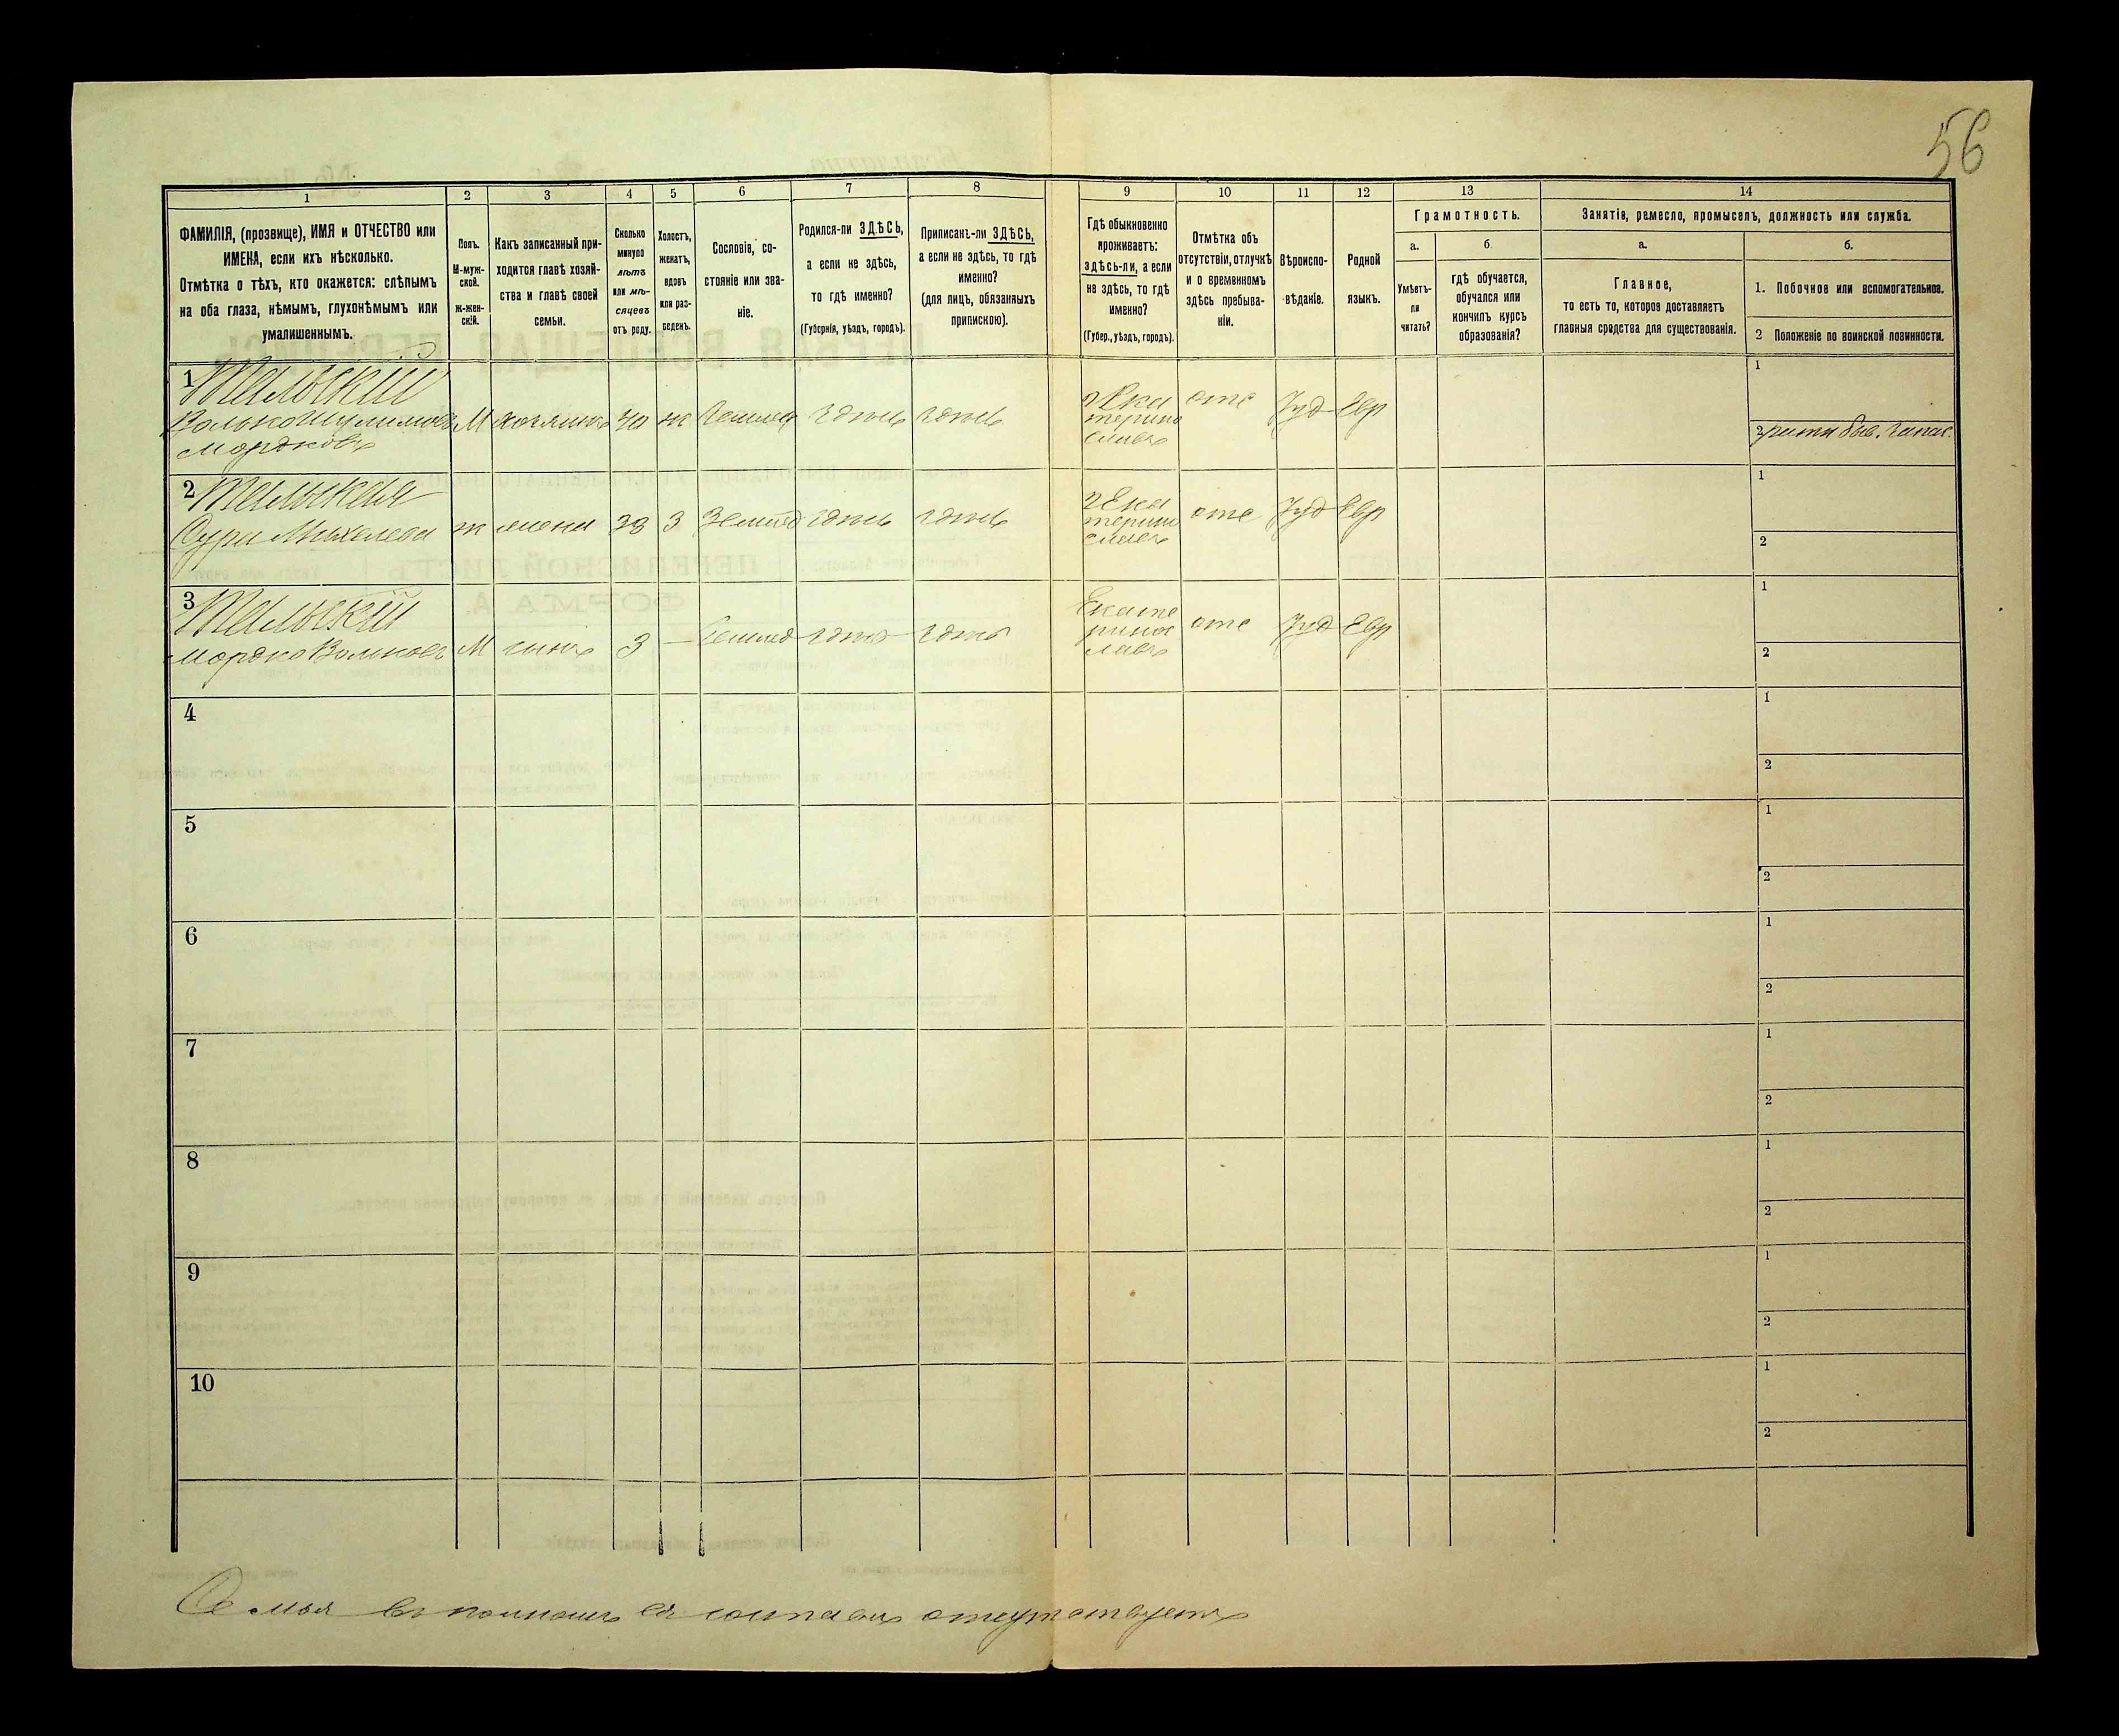 56
1 2 3 4 5 6 7 8 9 10 11 12 13 14
ФАМИЛІЯ, (прозвище), ИМЯ и ОТЧЕСТВО или
ИМЕНА, если ихъ нѣсколько.
Отмѣтка о тѣхъ, кто окажется: слѣпымъ
на оба глаза, нѣмымъ, глухонѣмымъ или
умалишеннымъ.
Полъ.
М-муж-
ской.
ж-жен-
скій.
Какъ записанный при-
ходится главѣ хозяй-
ства и главѣ своей
семьи.
Сколько
минуло
лѣтъ
или мѣ-
сяцевъ
отъ роду.
Холостъ,
женатъ,
вдовъ
или раз-
веденъ.
Сословіе, со-
стояніе или зва-
ніе.
Родился-ли ЗДѢСЬ,
а если не здѣсь,
то гдѣ именно?
(Губернія, уѣздъ, городъ).
Приписанъ-ли ЗДѢСЬ,
а если не здѣсь, то гдѣ
именно?
(для лицъ, обязанныхъ
припискою).
Гдѣ обыкновенно
проживаетъ:
здѣсь-ли, а если
не здѣсь, то гдѣ
именно?
(Губер., уѣздъ, городъ).
Отмѣтка объ
отсутствіи, отлучкѣ
и о временномъ
здѣсь пребыва-
ніи.
Вѣроиспо-
вѣданіе.
Родной
языкъ.
Грамотность.
а.
Умѣетъ-
ли
читать?
б.
гдѣ обучается,
обучался или
кончилъ курсъ
образованія?
Занятія, ремесло, промыселъ, должность или служба.
а.
Главное,
то есть то, которое доставляетъ
главныя средства для существованія.
б.
1. Побочное или вспомогательное.
2 Положеніе по воинской повинности.
1
Мордковъ
М
хозяинъ
здѣсь
здѣсь
г Ека
терино
славъ
отс
Іуд
Евр
1
2
2
Сура
ж
жена
3
Землед
здѣсь
здѣсь
г Ека
терино
славъ
отс
Іуд
Евр
1
2
3
Мордко Вольковъ
М
сынъ
3
—
Землед
здѣсь
здѣсь
Екате
ринос
лавъ
отс
Іуд
Евр
1
2
4
1
2
5
1
2
6
1
2
7
1
2
8
1
2
9
1
2
10
1
2
Семья въ полномъ ея составѣ отсутствуетъ